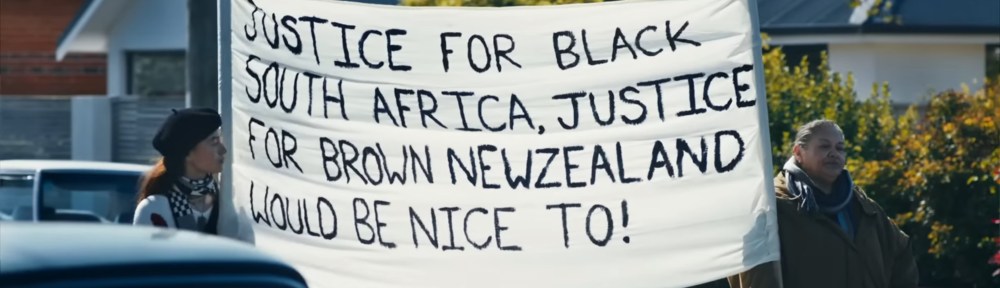 JUSTICE FOR BLACK
SOUTH AFRICA, JUSTICE
FOR BROWN NEWZEALAND
WOULD BE NICE TO!